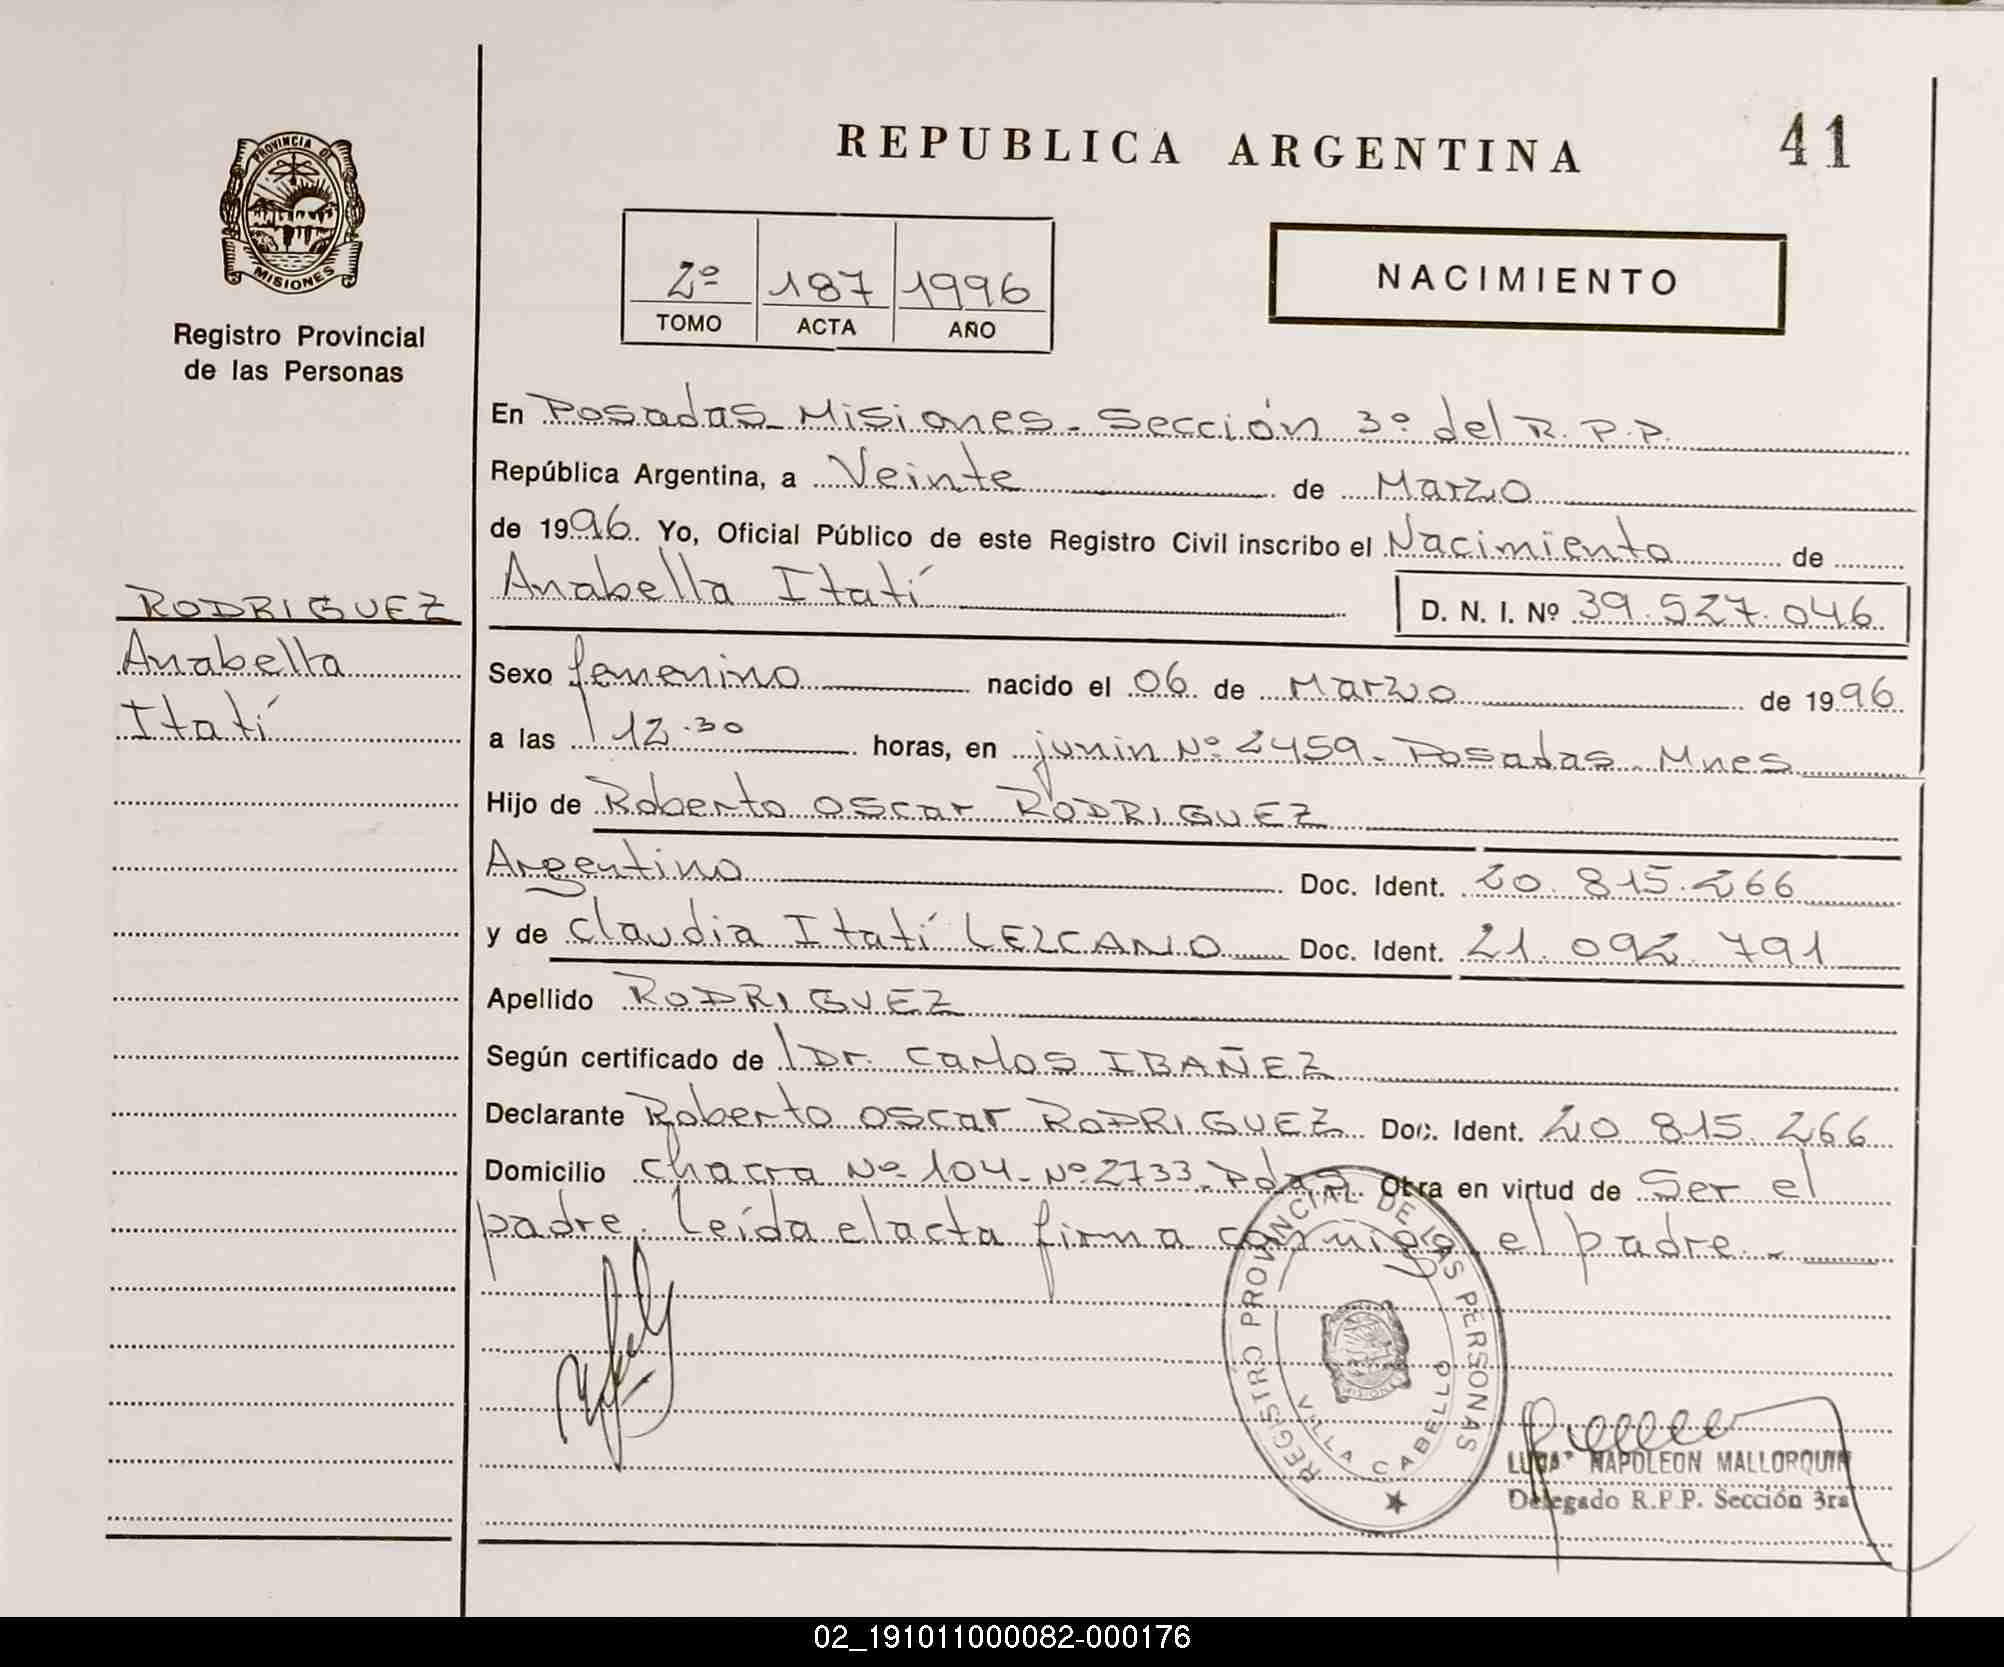 REPUBLICA ARGENTINA
41
PROVINCIA DE
MISIONES
Registro Provincial
de las Personas
2º 187 1996
TOMO ACTA AÑO
NACIMIENTO
En Posadas Misiones - Sección 3º del R.P.P.
República Argentina, a Veinte de Marzo
de 1996. Yo, Oficial Público de este Registro Civil inscribo el Nacimiento de
Anabella Itatí D. N. I. Nº 39.527.046
RODRIGUEZ
Anabella
Itatí
Sexo femenino nacido el 06 de Marzo de 1996
a las 12.30 horas, en junin Nº 2459 - Posadas - Mnes
Hijo de Roberto Oscar RODRIGUEZ
Argentino Doc. Ident. 20.815.266
y de Claudia Itatí LEZCANO Doc. Ident. 21.092.791
Apellido RODRIGUEZ
Según certificado de Dr. Carlos IBAÑEZ
Declarante Roberto Oscar RODRIGUEZ Doc. Ident. 20 815.266
Domicilio Chacra Nº 104 - Nº 2733 - Pdas. Obra en virtud de Ser el
padre. Leída el acta firma conmigo el padre. -
REGISTRO PROVINCIAL DE LAS PERSONAS
MISIONES
VILLA CABELLO
NAPOLEON MALLORQUIN
Delegado R.P.P. Sección 3ra
02_191011000082-000176